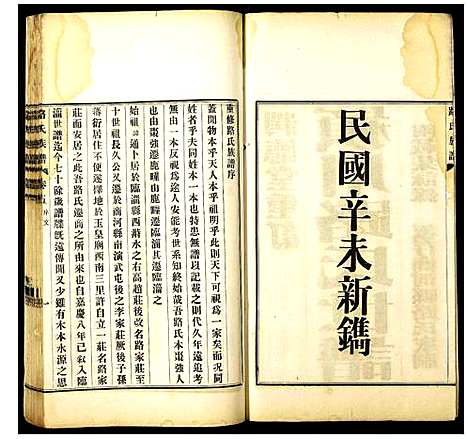 路氏族譜
民國辛未新鐫
重修路氏族譜序
蓋聞物本乎天人本乎祖明乎此則天下可視為一家矣而況同
姓者乎夫同姓本一本也特患無譜以記載之則代久年遠追考
無由一本反視為途人安能考世系知終始哉吾路氏本棗強人
也由棗強遷鹿疃由鹿疃遷臨淄其
十世祖 通卜居於臨淄縣西淅水之右高趙莊後改名路家莊至
十世祖長久公又遷於商河縣南演武屯後之李家莊厥後子孫
蕃衍居住不便遂擇地於玉皇廟西南三里許自立一莊名路家
莊而安居之此吾路氏遷商之所由來也自嘉慶八年已敘入臨
淄世譜迄今七十餘歲譜牒旣遠傳聞又少雖有木本水源之思
路氏族譜 卷 五 序文 一